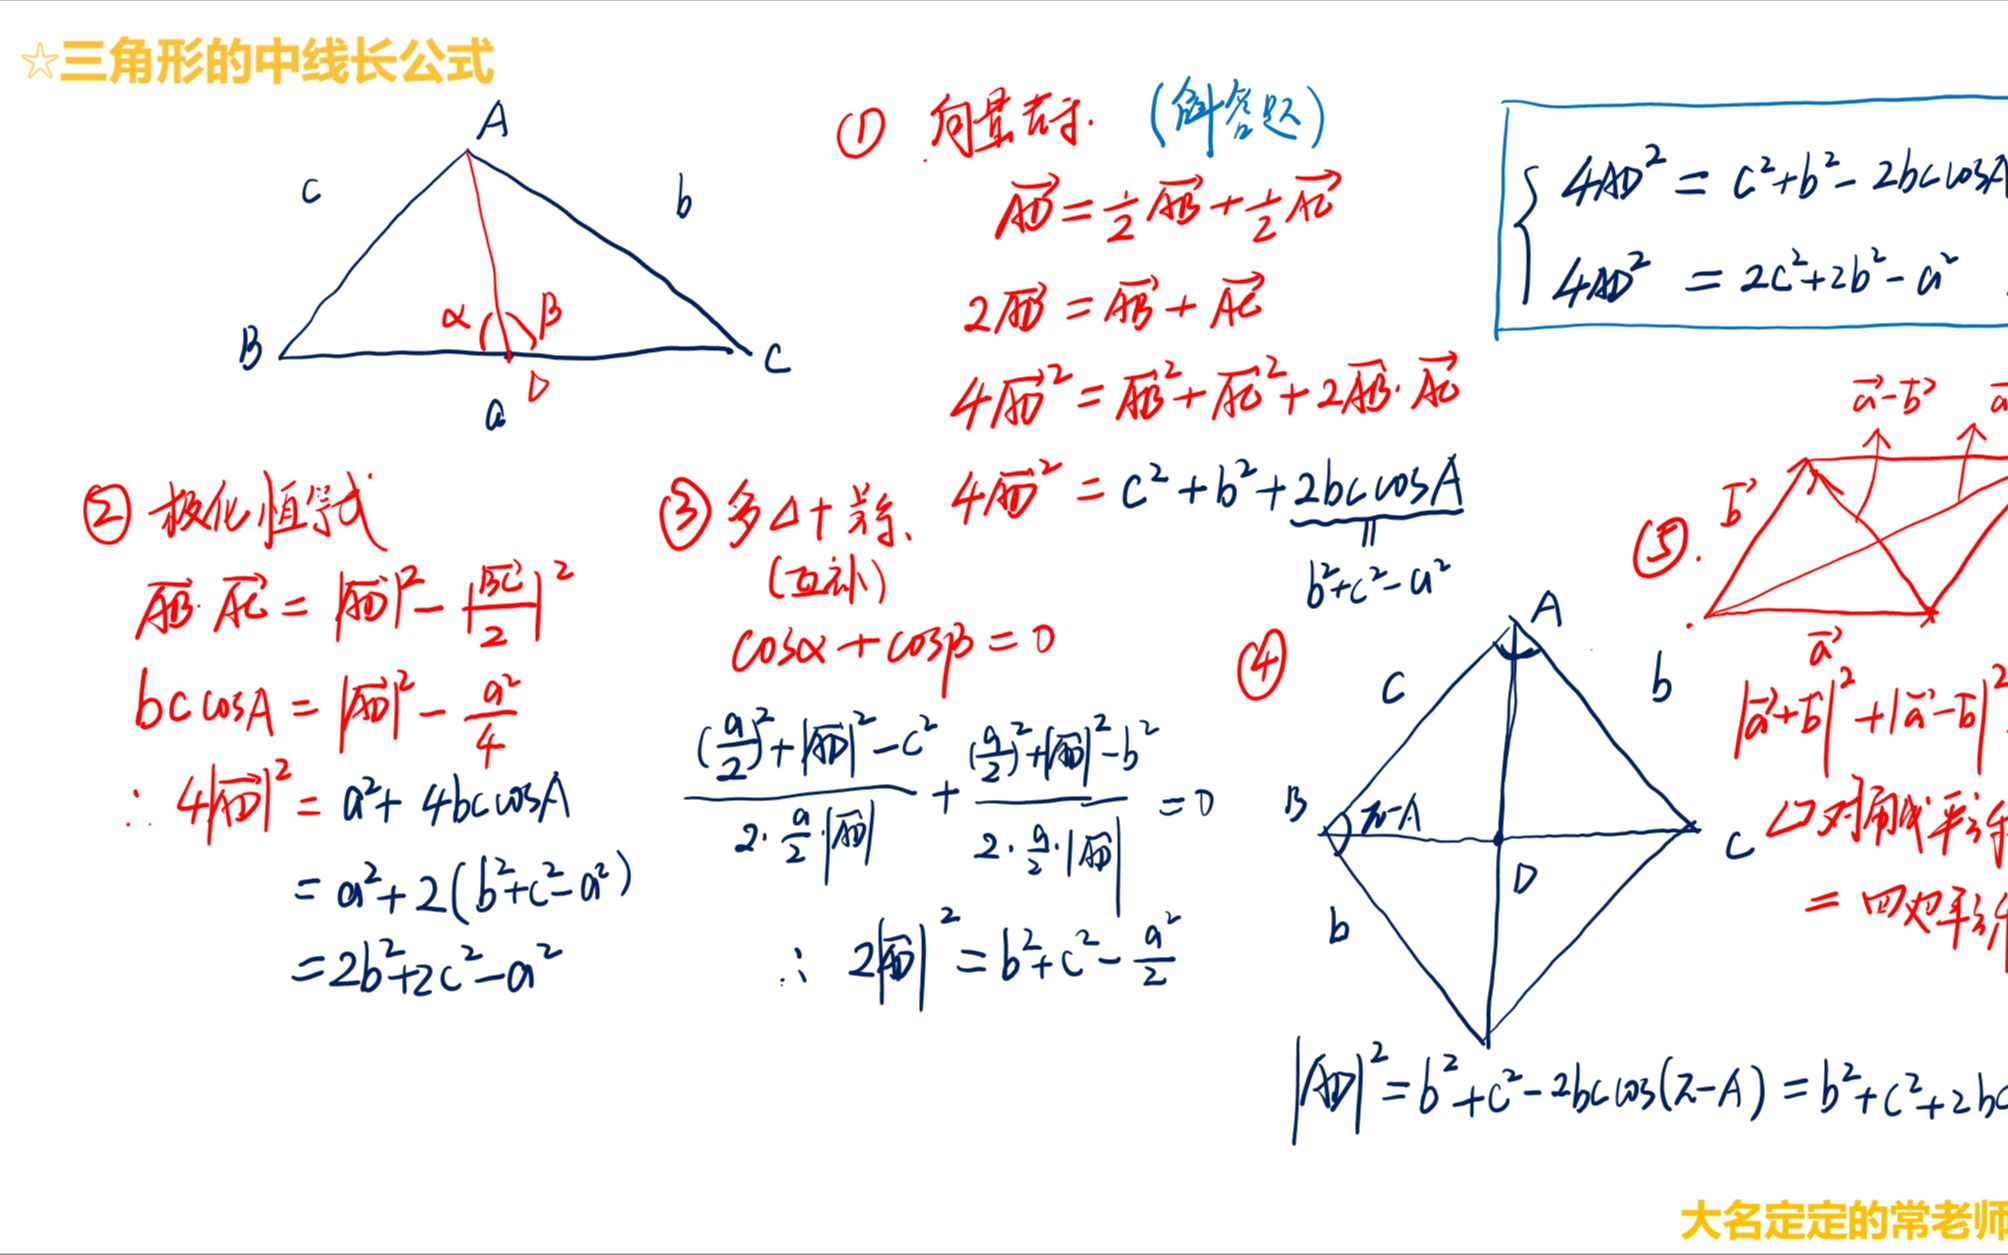 ☆三角形的中线长公式
A
c
b
α
β
B
C
D
a
① 向量表示. (解答题)
\vec{AD} = \frac{1}{2}\vec{AB} + \frac{1}{2}\vec{AC}
2\vec{AD} = \vec{AB} + \vec{AC}
4\vec{AD}^2 = \vec{AB}^2 + \vec{AC}^2 + 2\vec{AB}·\vec{AC}
4\vec{AD}^2 = c^2 + b^2 + 2bccosA
||
b^2+c^2-a^2
4AD^2 = c^2+b^2-2bccosA
4AD^2 = 2c^2+2b^2-a^2
② 极化恒等式
\vec{AB}·\vec{AC} = |\vec{AD}|^2 - |\frac{\vec{BC}}{2}|^2
bccosA = |\vec{AD}|^2 - \frac{a^2}{4}
∴ 4|\vec{AD}|^2 = a^2 + 4bccosA
= a^2+2(b^2+c^2-a^2)
=2b^2+2c^2-a^2
③ 多△+
(互补)
cosα + cosβ = 0
\frac{(\frac{a}{2})^2+|\vec{AD}|^2-c^2}{2·\frac{a}{2}·|\vec{AD}|} + \frac{(\frac{a}{2})^2+|\vec{AD}|^2-b^2}{2·\frac{a}{2}·|\vec{AD}|} = 0
∴ 2|\vec{AD}|^2 = b^2+c^2-\frac{a^2}{2}
④
A
c
b
B
π-A
C
D
b
|AD|^2 = b^2+c^2-2bccos(π-A) = b^2+c^2+2bc
⑤.
\vec{a}-\vec{b}
\vec{a}
\vec{b}
\vec{a}
|\vec{a}+\vec{b}|^2+|\vec{a}-\vec{b}|^2
▱对角线平方
= 四边平方
大名定定的常老师